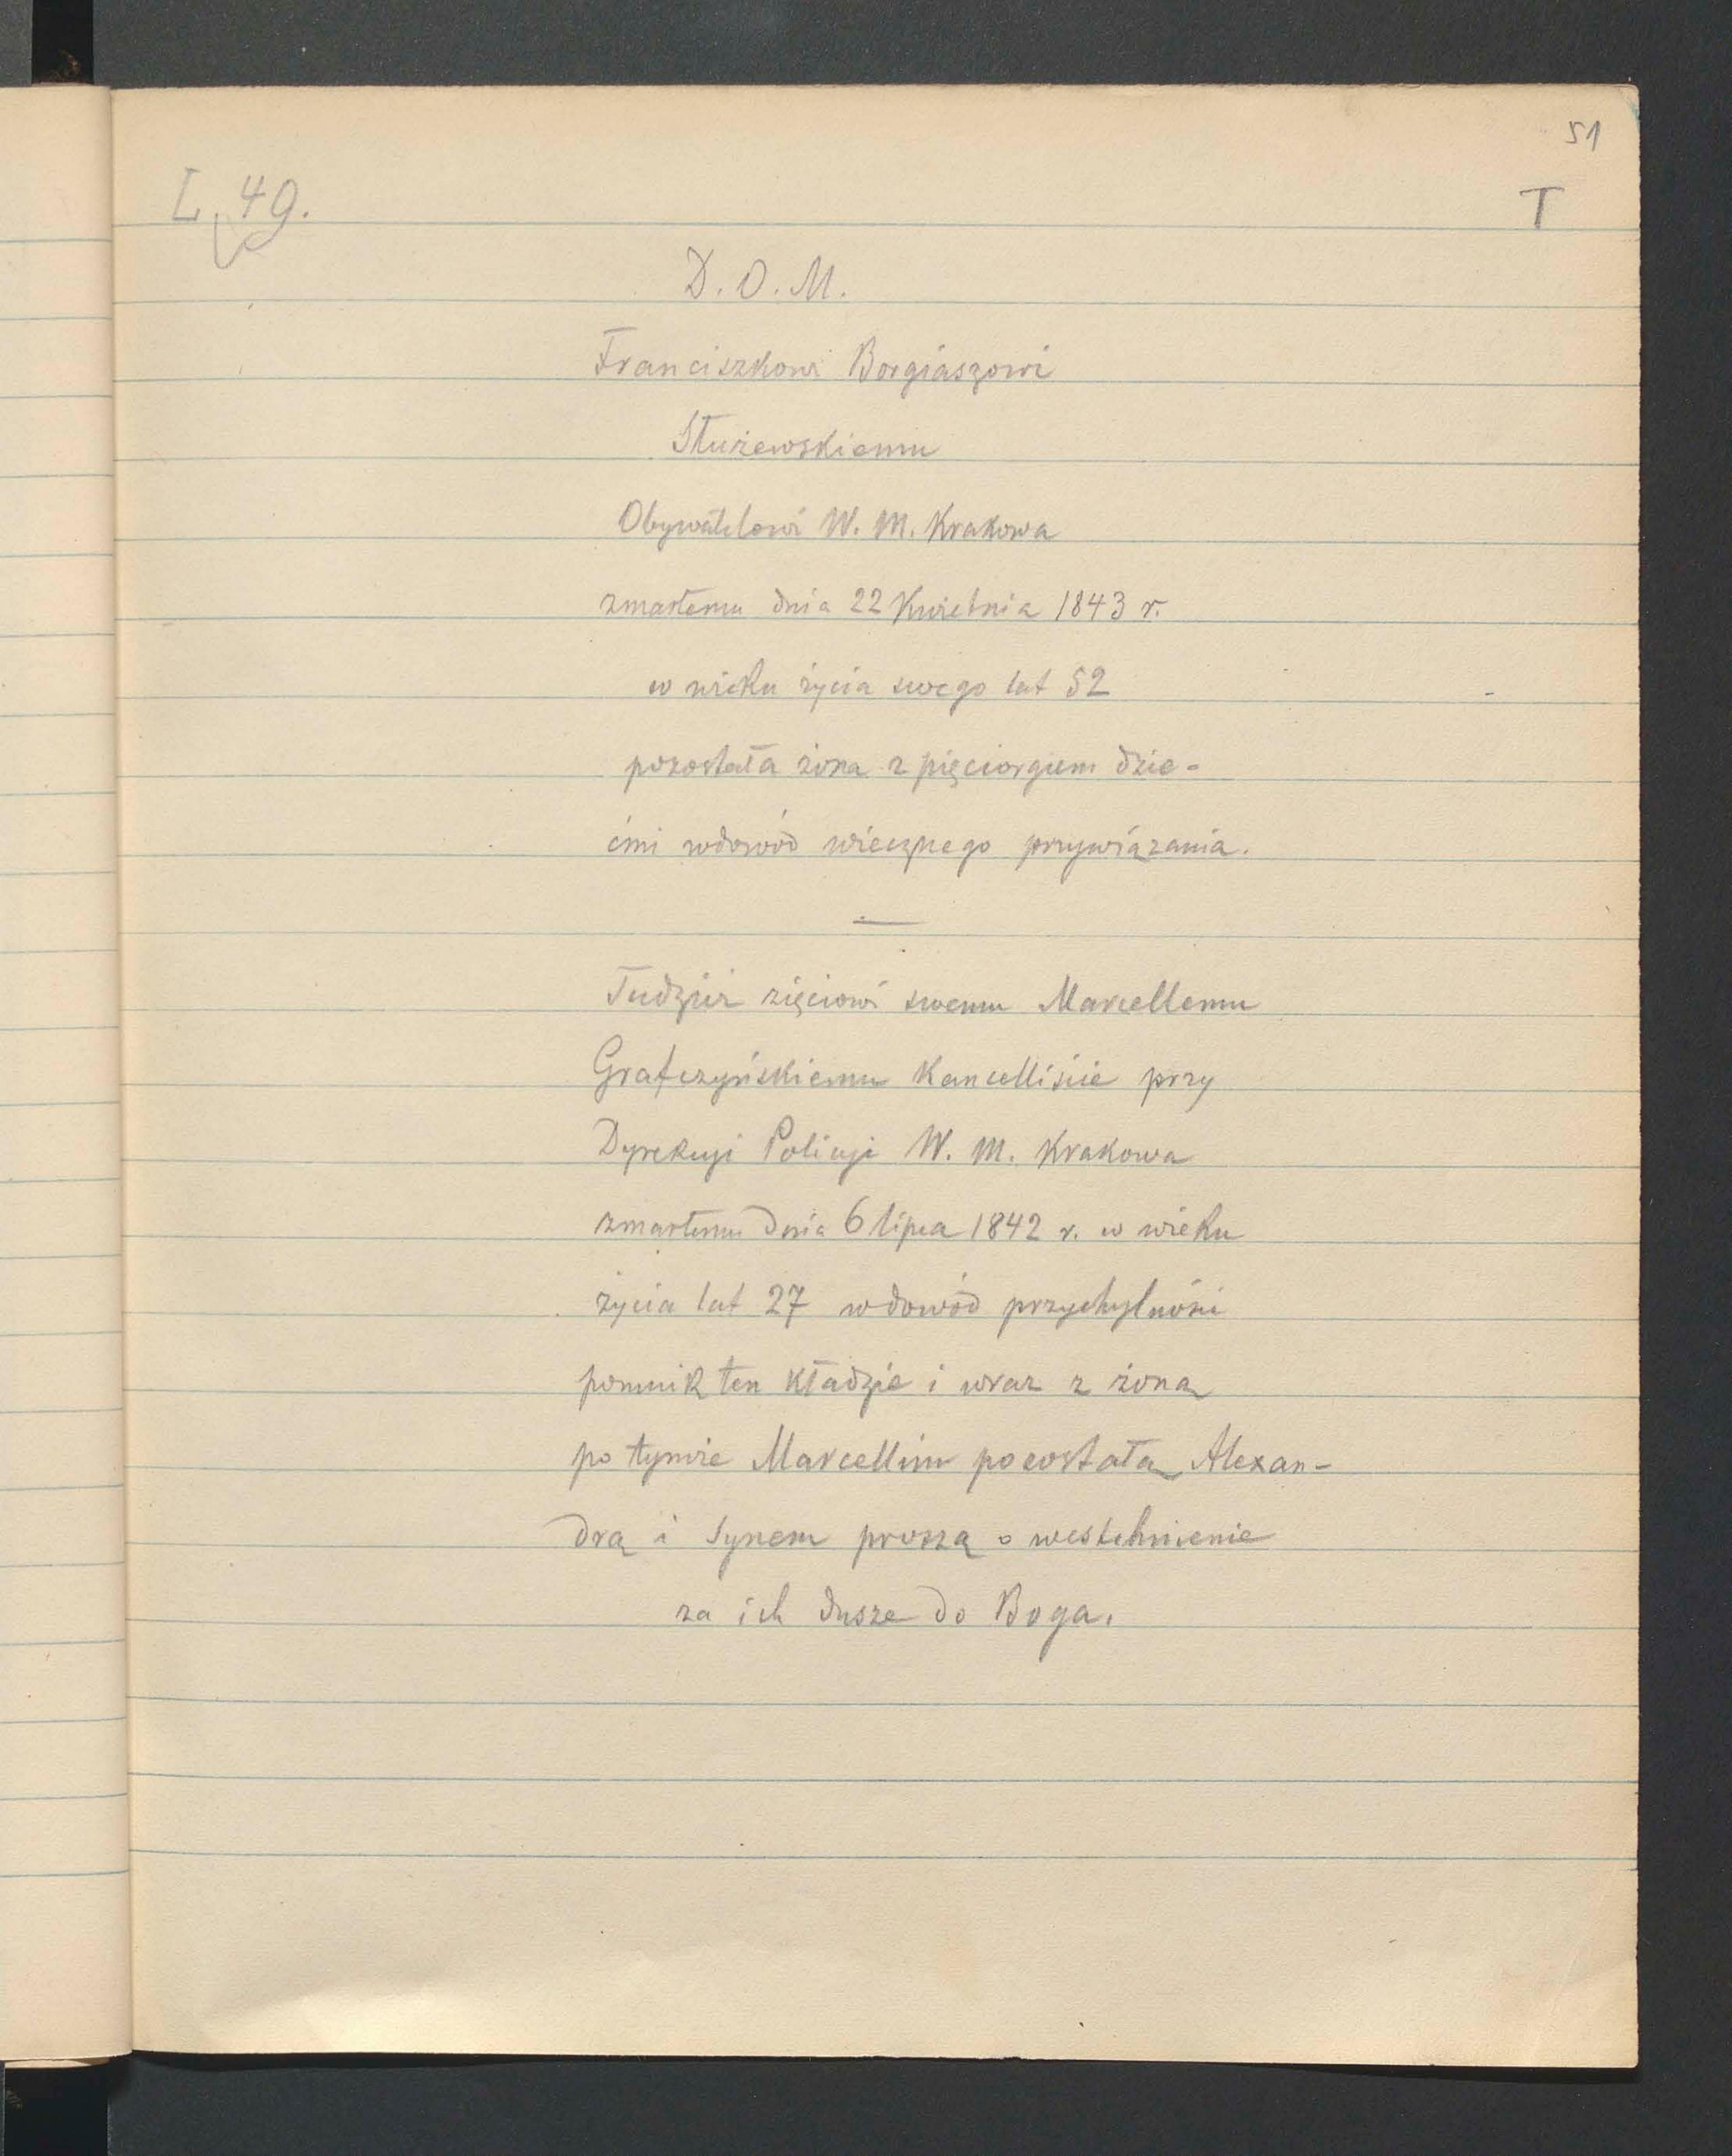 51
L. 49.
T
D. O. M.
Franciszkowi Borgiaszowi
Służewskiemu
Obywatelowi W. M. Krakowa
zmarłemu dnia 22 Kwietnia 1843 r.
w wieku życia swego lat 52
pozostała żona z pięciorgiem dzie-
ćmi wdowód wiecznego przywiązania.
Tudzież zięciowi swemu Marcellemu
Grafczyńskiemu Kancelliście przy
Dyrekcyi Policyi W. M. Krakowa
zmarłemu dnia 6 lipca 1842 r. w wieku
życia lat 27 wdowód przychylności
pomnik ten kładzie i wraz z żoną
po tymże Marcellim pozostałą Alexan-
drą i Synem proszą o westchnienie
za ich dusze do Boga.